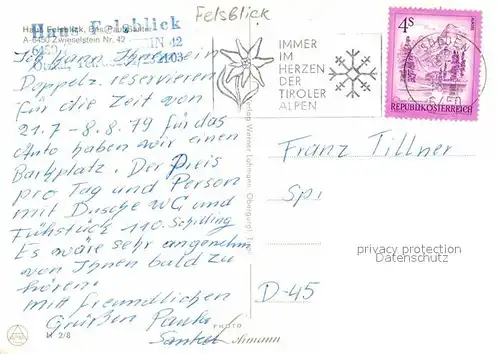 Felsblick
Haus Felsblick,
A-6450 Zwieselstein Nr. 42
Haus Felsblick
6450 IN 42
Ich kann Ihnen ein
Doppelz. reservieren
für die Zeit von
21.7 - 8.8.79 für das
Auto haben wir einen
Parkplatz. Der Preis
pro Tag und Person
mit Dusche WC und
Fühstück 110. Schiling
Es wäre sehr angenehm
von Ihnen bald zu
hören!
mit freundlichen
Grüßen
M 2/8
PHOTO
Verlag Werner Lohmann, Obergurgl, Tirol
IMMER
IM
HERZEN
DER
TIROLER
ALPEN
4S
REPUBLIK ÖSTERREICH
Franz Tillner
Spi
D-45
privacy protection
Datenschutz